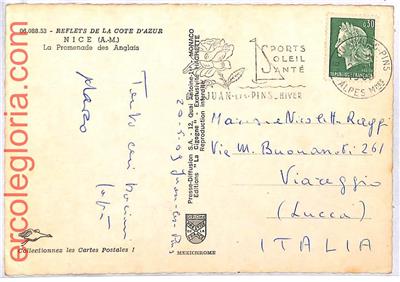 06.088.53 - REFLETS DE LA COTE D'AZUR
NICE (A.-M.)
La Promenade des Anglais
Tanti cari bacioni
Marco
20-5-69 Juan-les-Pins
Presse-Diffusion S.A. - 12, Quai Antoine-1er, MONACO
Editions "La Cigogne" - Exclusivité HACHETTE
Reproduction interdite
MEXICHROME
Collectionnez les Cartes Postales !
SPORTS
SOLEIL
SANTÉ
JUAN-LES-PINS_HIVER
PINS
ALPES MMES
0,30
REPUBLIQUE FRANÇAISE
Nicoletta Raggi
Via M. Buonarroti 261
Viareggio
(Lucca)
ITALIA
ercolegloria.com